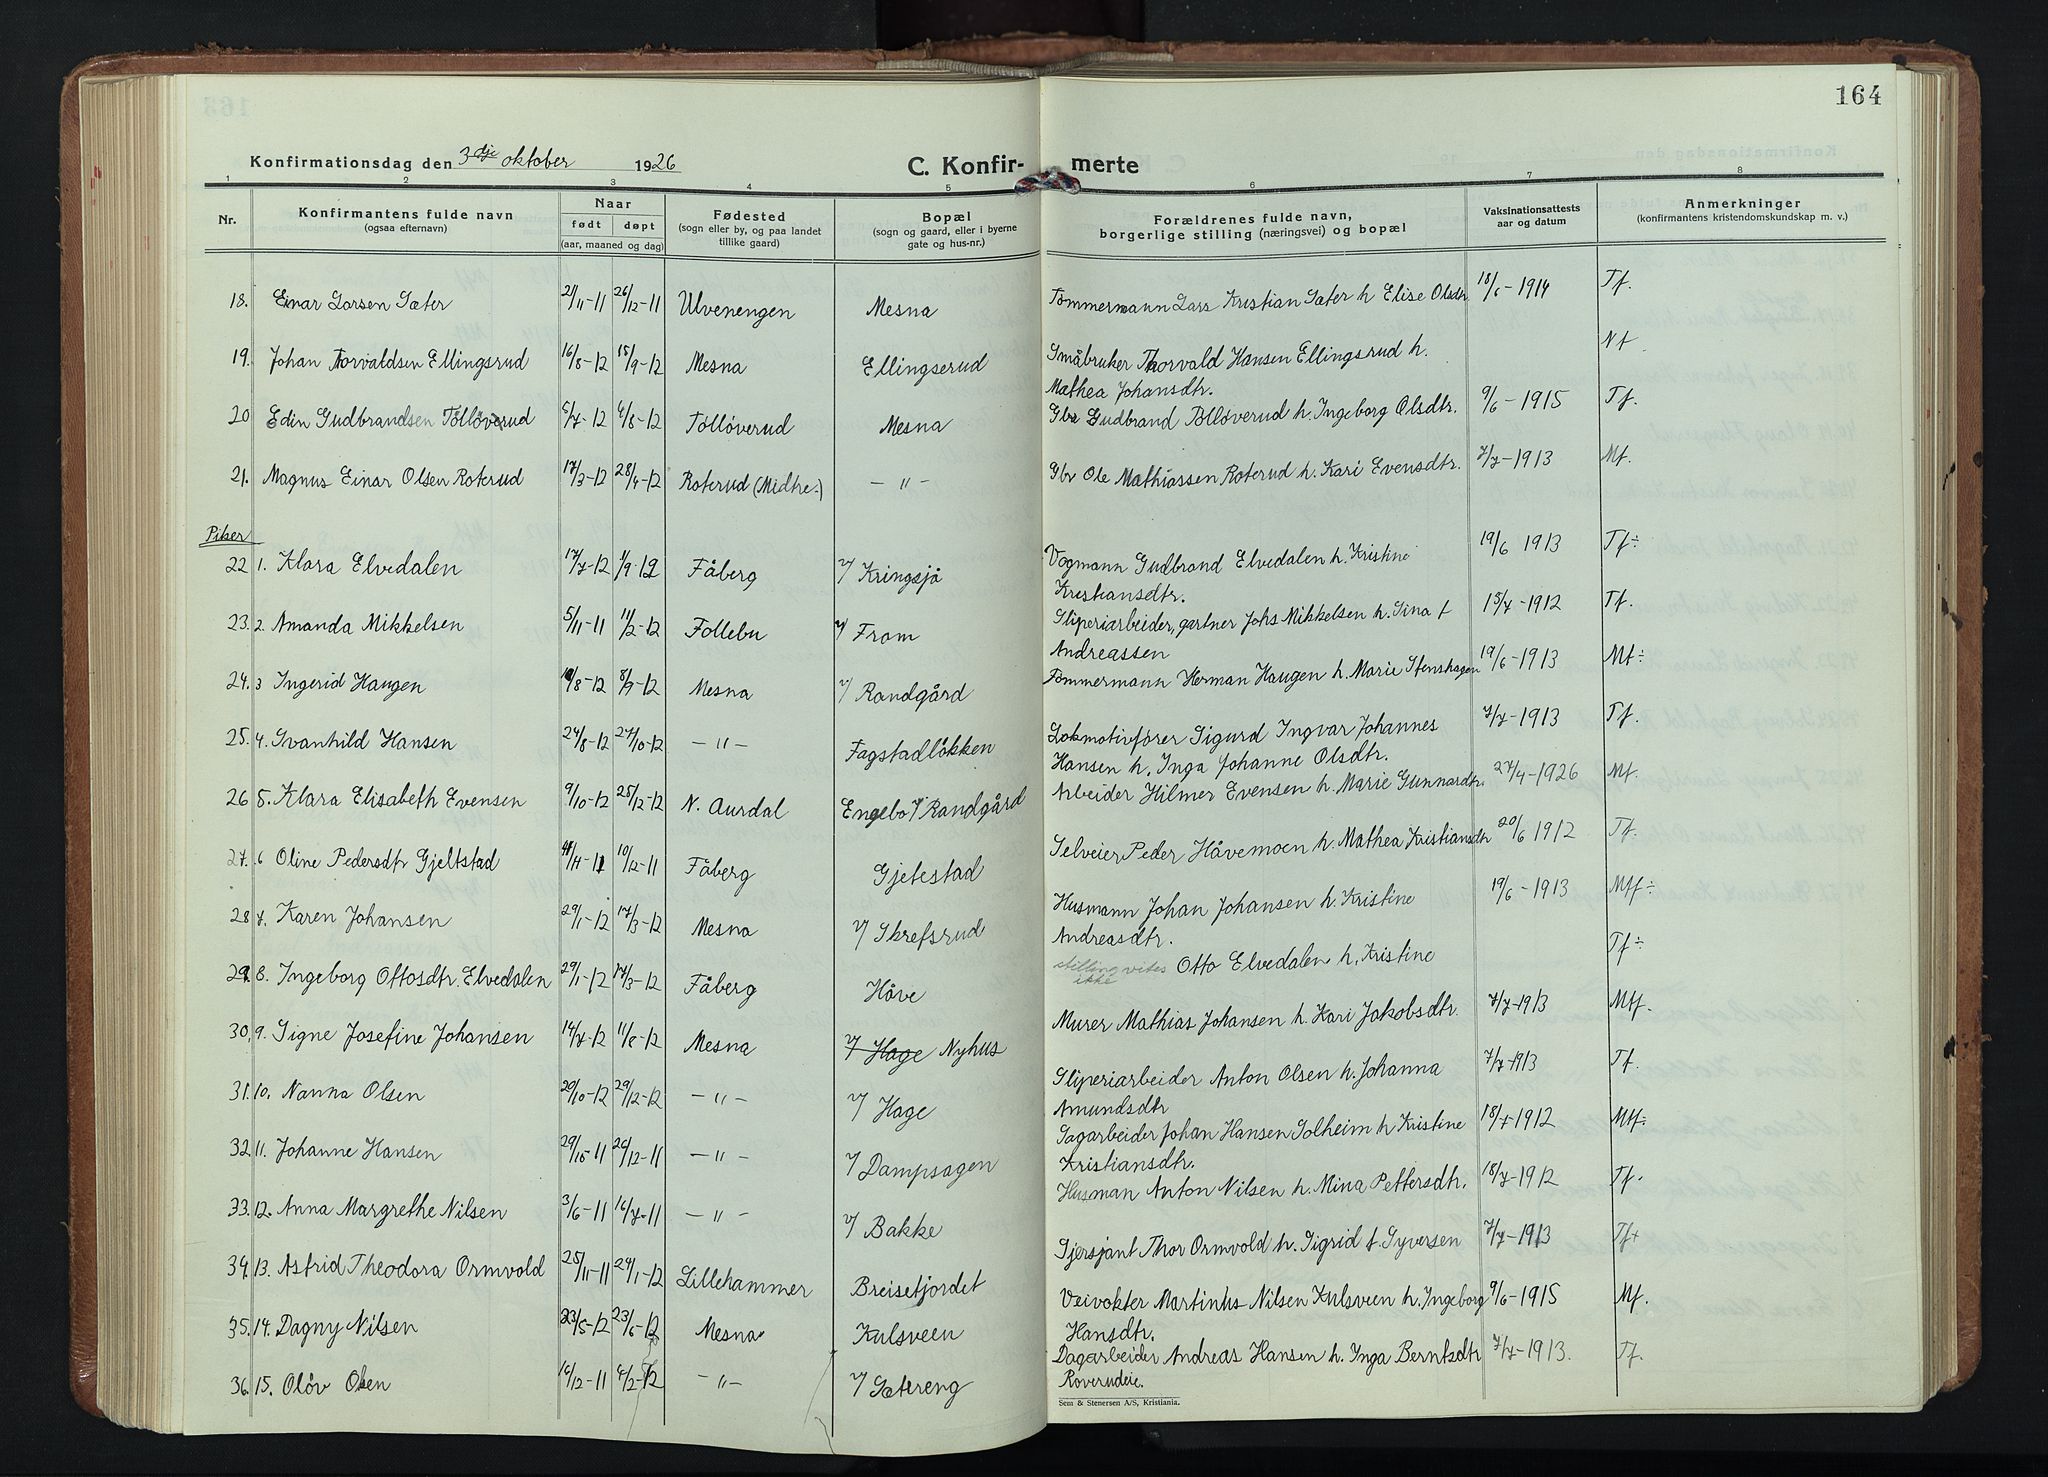 164
Konfirmationsdag den 3dje oktober 1926
C. Konfirmerte
1 2 3 4 5 6 7 8
Nr. Konfirmantens fulde navn (ogsaa efternavn) Naar født døpt (aar, maaned og dag) Fødested (sogn eller by, og paa landet tillike gaard) Bopæl (sogn og gaard, eller i byerne gate og hus-nr.) Forældrenes fulde navn, borgerlige stilling (næringsvei) og bopæl Vaksinationsattests aar og datum Anmerkninger (konfirmantens kristendomskundskap m. v.)
18. Einar Larsen Sæter 21/11-11 26/12-11 Ulvenengen Mesna Tømmermann Lars Kristian Sæter h Elise Olsdtr 18/6-1914 Tf.
19. Johan Torvaldsen Ellingsrud 16/8-12 15/9-12 Mesna Ellingserud Småbruker Thorvald Hansen Ellingsrud h. Nf
Mathea Johansdtr.
20 Edin Gudbrandsen Tølløverud /7-12 4/8-12 Tølløverud Mesna Gbr Gudbrand Tølløverud h. Ingeborg Olsdtr. 9/6-1915 Tf.
21. Magnus Einar Olsen Roterud 17/3-12 28/4-12 Roterud (Midtre-) -"- Gbr Ole Mathiassen Roterud h. Kari Evensdtr. 7/7-1913 Mf.
Piker
22 1. Klara Elvedalen 17/7-12 1/9-12 Fåberg v/ Kringsjå Vogmann Gudbrand Elvedalen h. Kristine 19/6 1913 Tf÷
Kristiansdtr.
23. 2. Amanda Mikkelsen 5/11-11 11/2-12 Follebu v/ From Sliperiarbeider, gartner Johs Mikkelsen h. Sina f 15/7-1912 Tf.
Andreassen
24. 3 Ingerid Haugen /8-12 8/9-12 Mesna v/ Randgård Tømmermann Herman Haugen h. Marie Stenshagen 19/6-1913 Mf÷
25. 4. Svanhild Hansen 24/8-12 27/10-12 -"- Fagstadløkken Lokmotivfører Sigurd Ingvar Johannes 7/7-1913 Tf.
Hansen h. Inga Johanne Olsdtr.
26 5. Klara Elisabeth Evensen 9/10-12 25/12-12 N. Aurdal Engebo v/ Randgård Arbeider Hilmer Evensen h. Marie Gunnardtr. 27/4-1926 Mf.
27. 6 Oline Pedersdtr Gjeltstad /11-11 10/12-11 Fåberg Gjetestad Selveier Peder Håvemoen h. Mathea Kristiansdtr 20/6 1912 Tf.
28 7. Karen Johansen 29/1-12 17/3-12 Mesna v/ Skrefsrud Husmann Johan Johansen h. Kristine 19/6-1913 Mf÷
Andreasdtr.
29. 8. Ingeborg Ottosdtr. Elvedalen 29/1-12 17/3-12 Fåberg Håve stilling vites ikke Otto Elvedalen h. Kristine Tf÷
30. 9. Signe Josefine Johansen 14/7-12 11/8-12 Mesna v/ Hage Nyhus Murer Mathias Johansen h. Kari Jakobsdtr. 7/7-1913 Mtf.
31. 10. Nanna Olsen 20/10-12 29/12-12 -"- v/ Hage Sliperiarbeider Anton Olsen h. Johanna 7/7-1913 Tf.
Amundsdtr
32 11. Johanne Hansen 29/10-11 26/12-11 -"- v/ Dampsagen Sagarbeider Johan Hansen Solheim h Kristine 18/7-1912 Mtf.
Kristiansdtr.
33. 12. Anna Margrethe Nilsen 3/6-11 16/7-11 -"- v/ Bakke Husman Anton Nilsen h. Mina Pettersdtr. 18/7-1912 Tf.
34. 13. Astrid Theodora Ormvold 25/11-11 29/1-12 Lillehammer Breisetjordet Sjersjant Thor Ormvold h. Sigrid f. Syversen 7/7-1913 Tf+
35. 14. Dagny Nilsen 23/5-12 23/6-12 Mesna Kulsveen Veivokter Martinus Nilsen Kulsveen h. Ingeborg 9/6-1915 Mf.
Hansdtr.
36. 15. Oløv Olsen /12-11 4/2-12 -"- v/ Sætereng Dagarbeider Andreas Hansen h. Inga Berntsdtr 7/7-1913. Tf.
Roverudeie.
Sem & Stenersen A/S, Kristiania.